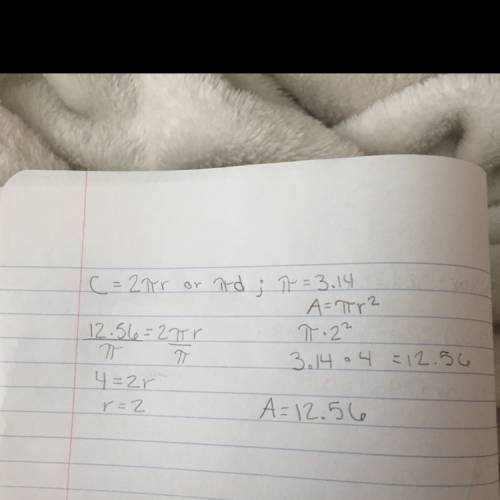 C = 2πr or πd ; π = 3.14
A = πr²
12.56 = 2πr
π π
π · 2²
3.14 · 4 = 12.56
4 = 2r
r = 2
A = 12.56